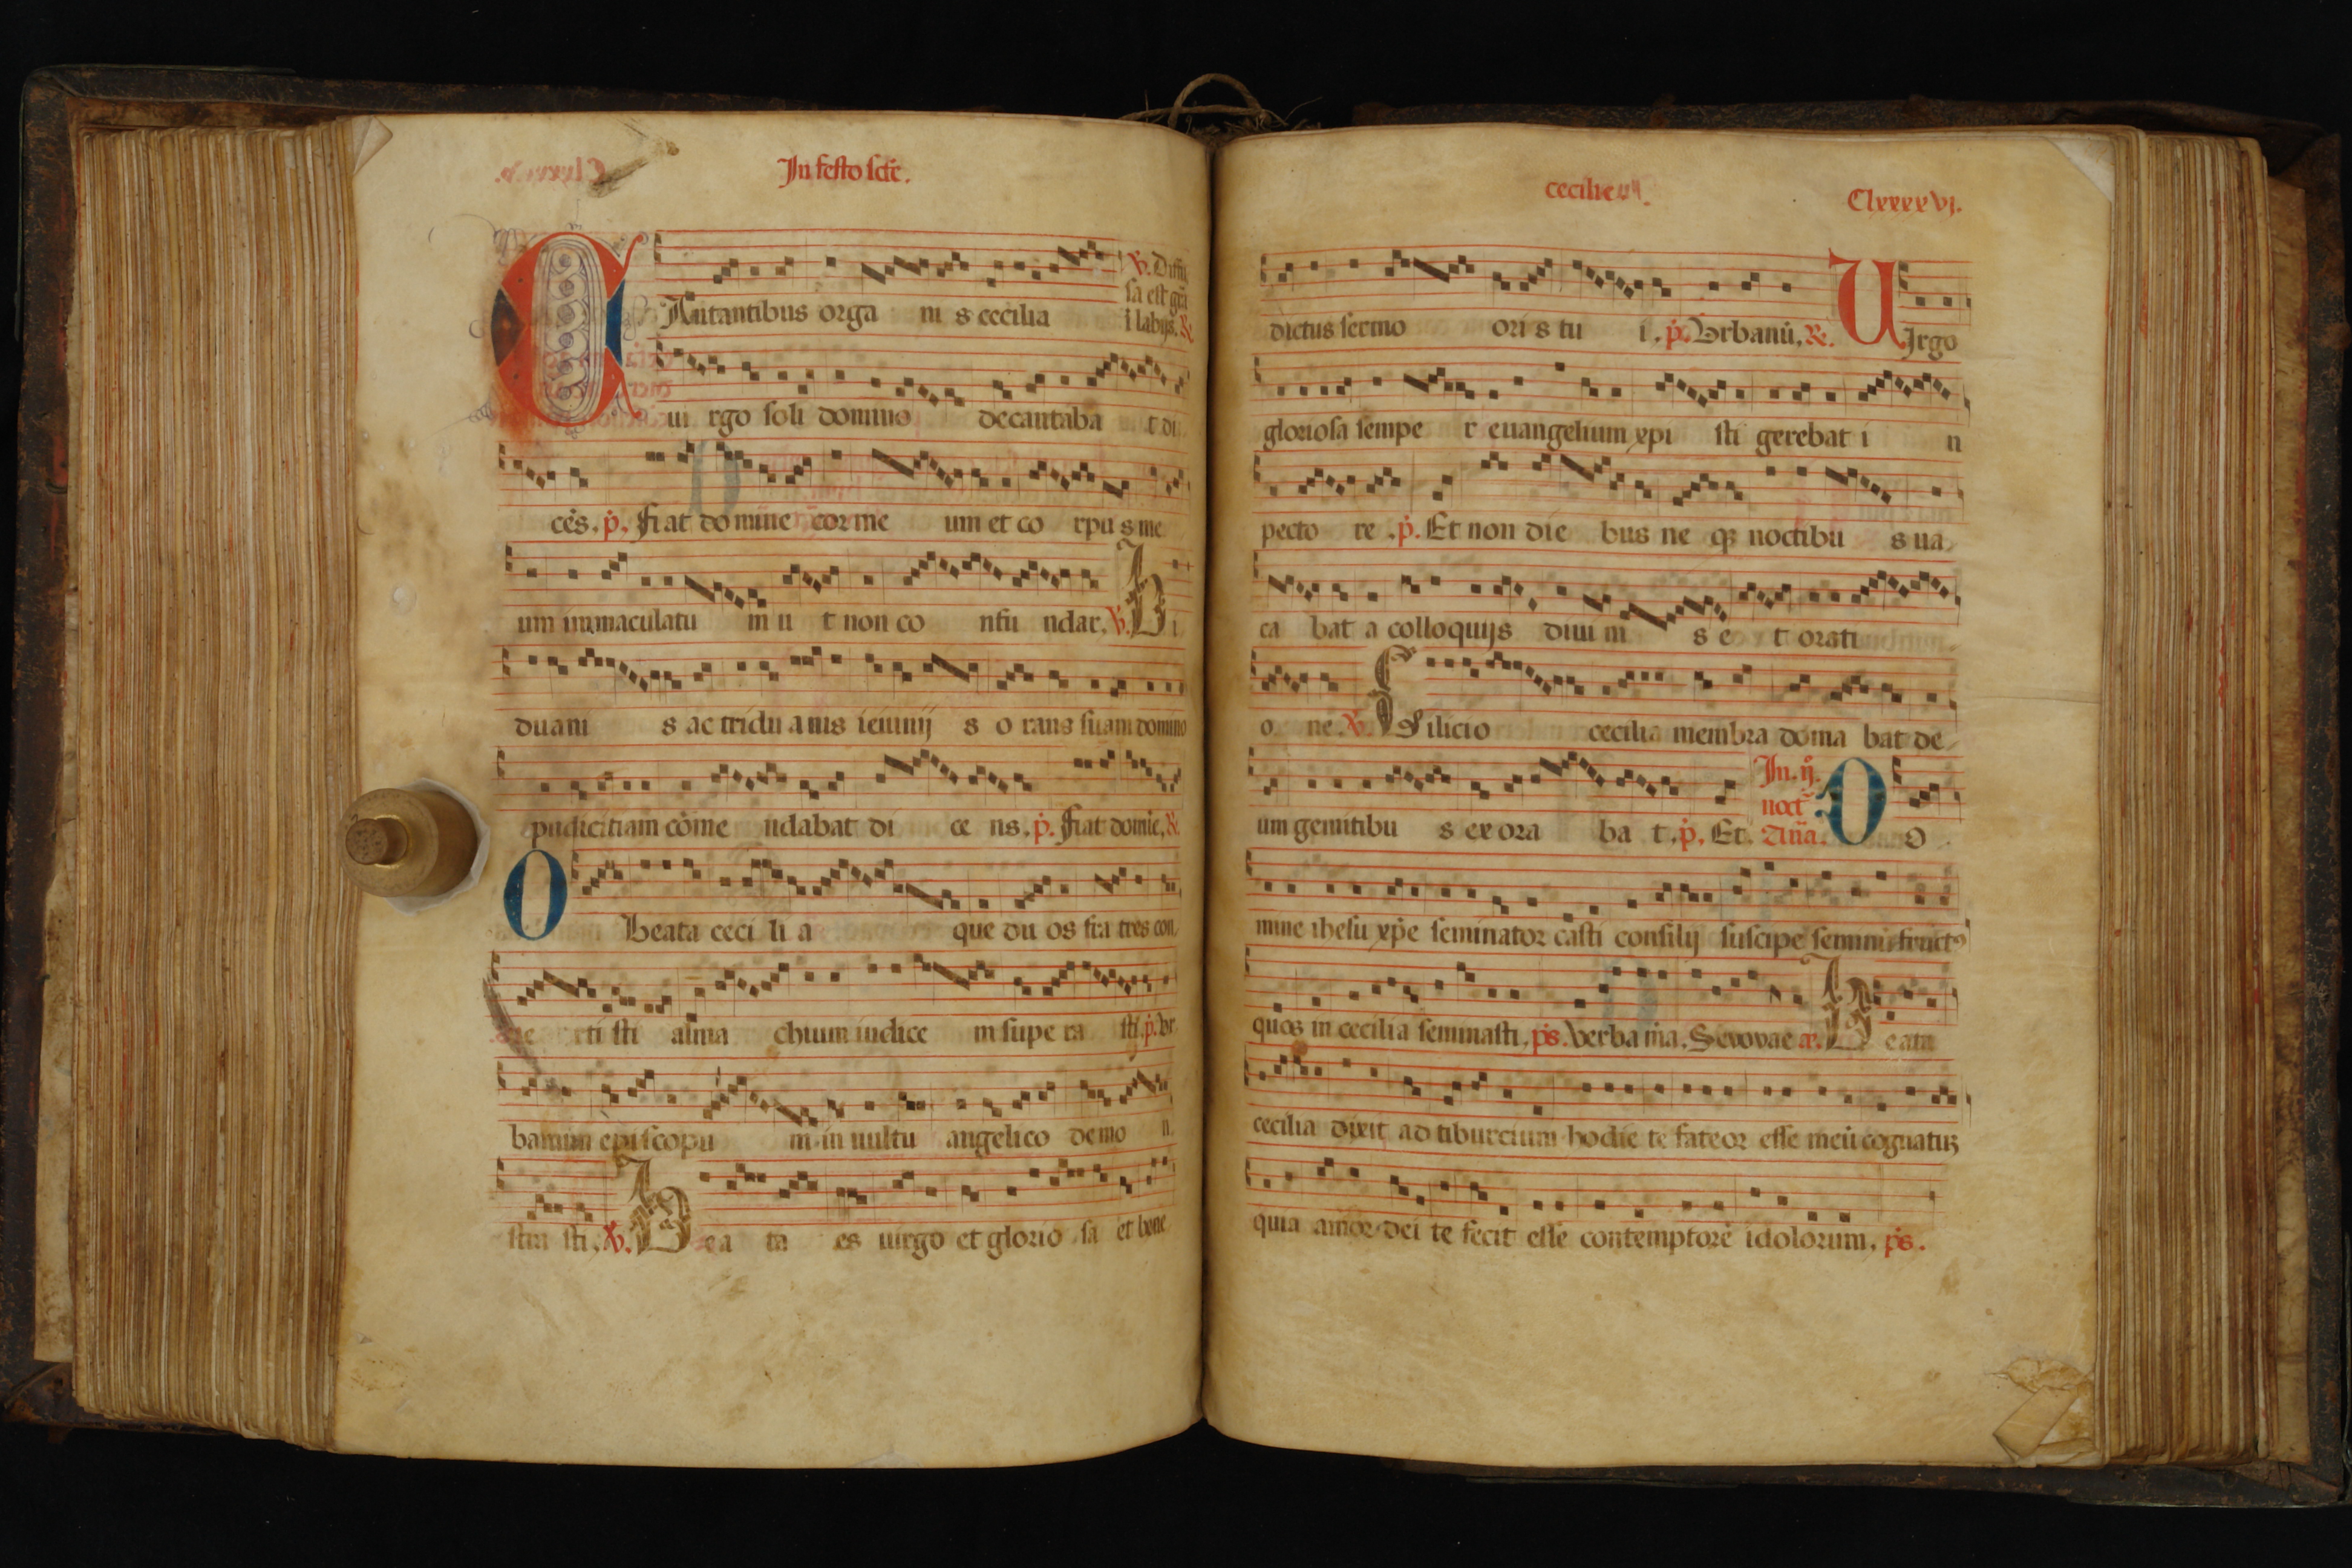 In festo scē.
CAntantibus orga ni s cecilia
℣. Diffu
sa est grā
i labijs. ꝶ
ui rgo soli domino decantaba t di
cēs. p̄. Fiat domine cor me um et co rpus me
um immaculatu m u t non co nfu ndar. ℣. Bi
duani s ac tridu anis ieiunij s o rans suam domino
pudicitiam cōme ndabat di ce ns. p̄. Fiat domīe. ꝶ
O Beata ceci li a que du os fra tres con
ue rti sti alma chium iudice m supe ra sti. p̄. Vr
banum epi scopu m in uultu angelico demo n
stra sti. ℣. Bea ta es uirgo et glorio sa et bene
cecilie.
Clxxxxvj.
dictus sermo ori s tu i. p̄. Vrbanū. ꝶ. UIrgo
gloriosa sempe r euangelium xpi sti gerebat i n
pecto re. p̄. Et non die bus ne qꝫ noctibu s ua
ca bat a colloquijs diui ni s e t orati
o ne. ℣. Cilicio cecilia membra doma bat de
um gemitibu s ex ora ba t. p̄. Et
In. ij.
noct
Añā.
DO
mine ihesu xp̄e seminator casti consilij suscipe seminū fructꝰ
quos in cecilia seminasti. p̄s. Verba mā. Sevovae Beata
cecilia dixit ad tiburcium hodie te fateor esse meū cognatuꝫ
quia amor dei te fecit esse contemptorē idolorum. p̄s.